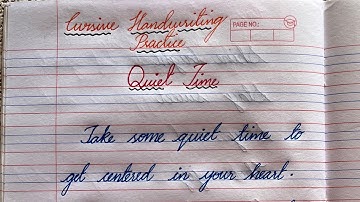 Cursive Handwriting
PAGE NO.:
Practice
Quiet Time
Take some quiet time to
get centered in your heart.